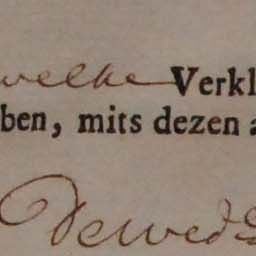 welke Verkl
ben, mits dezen a
De wed